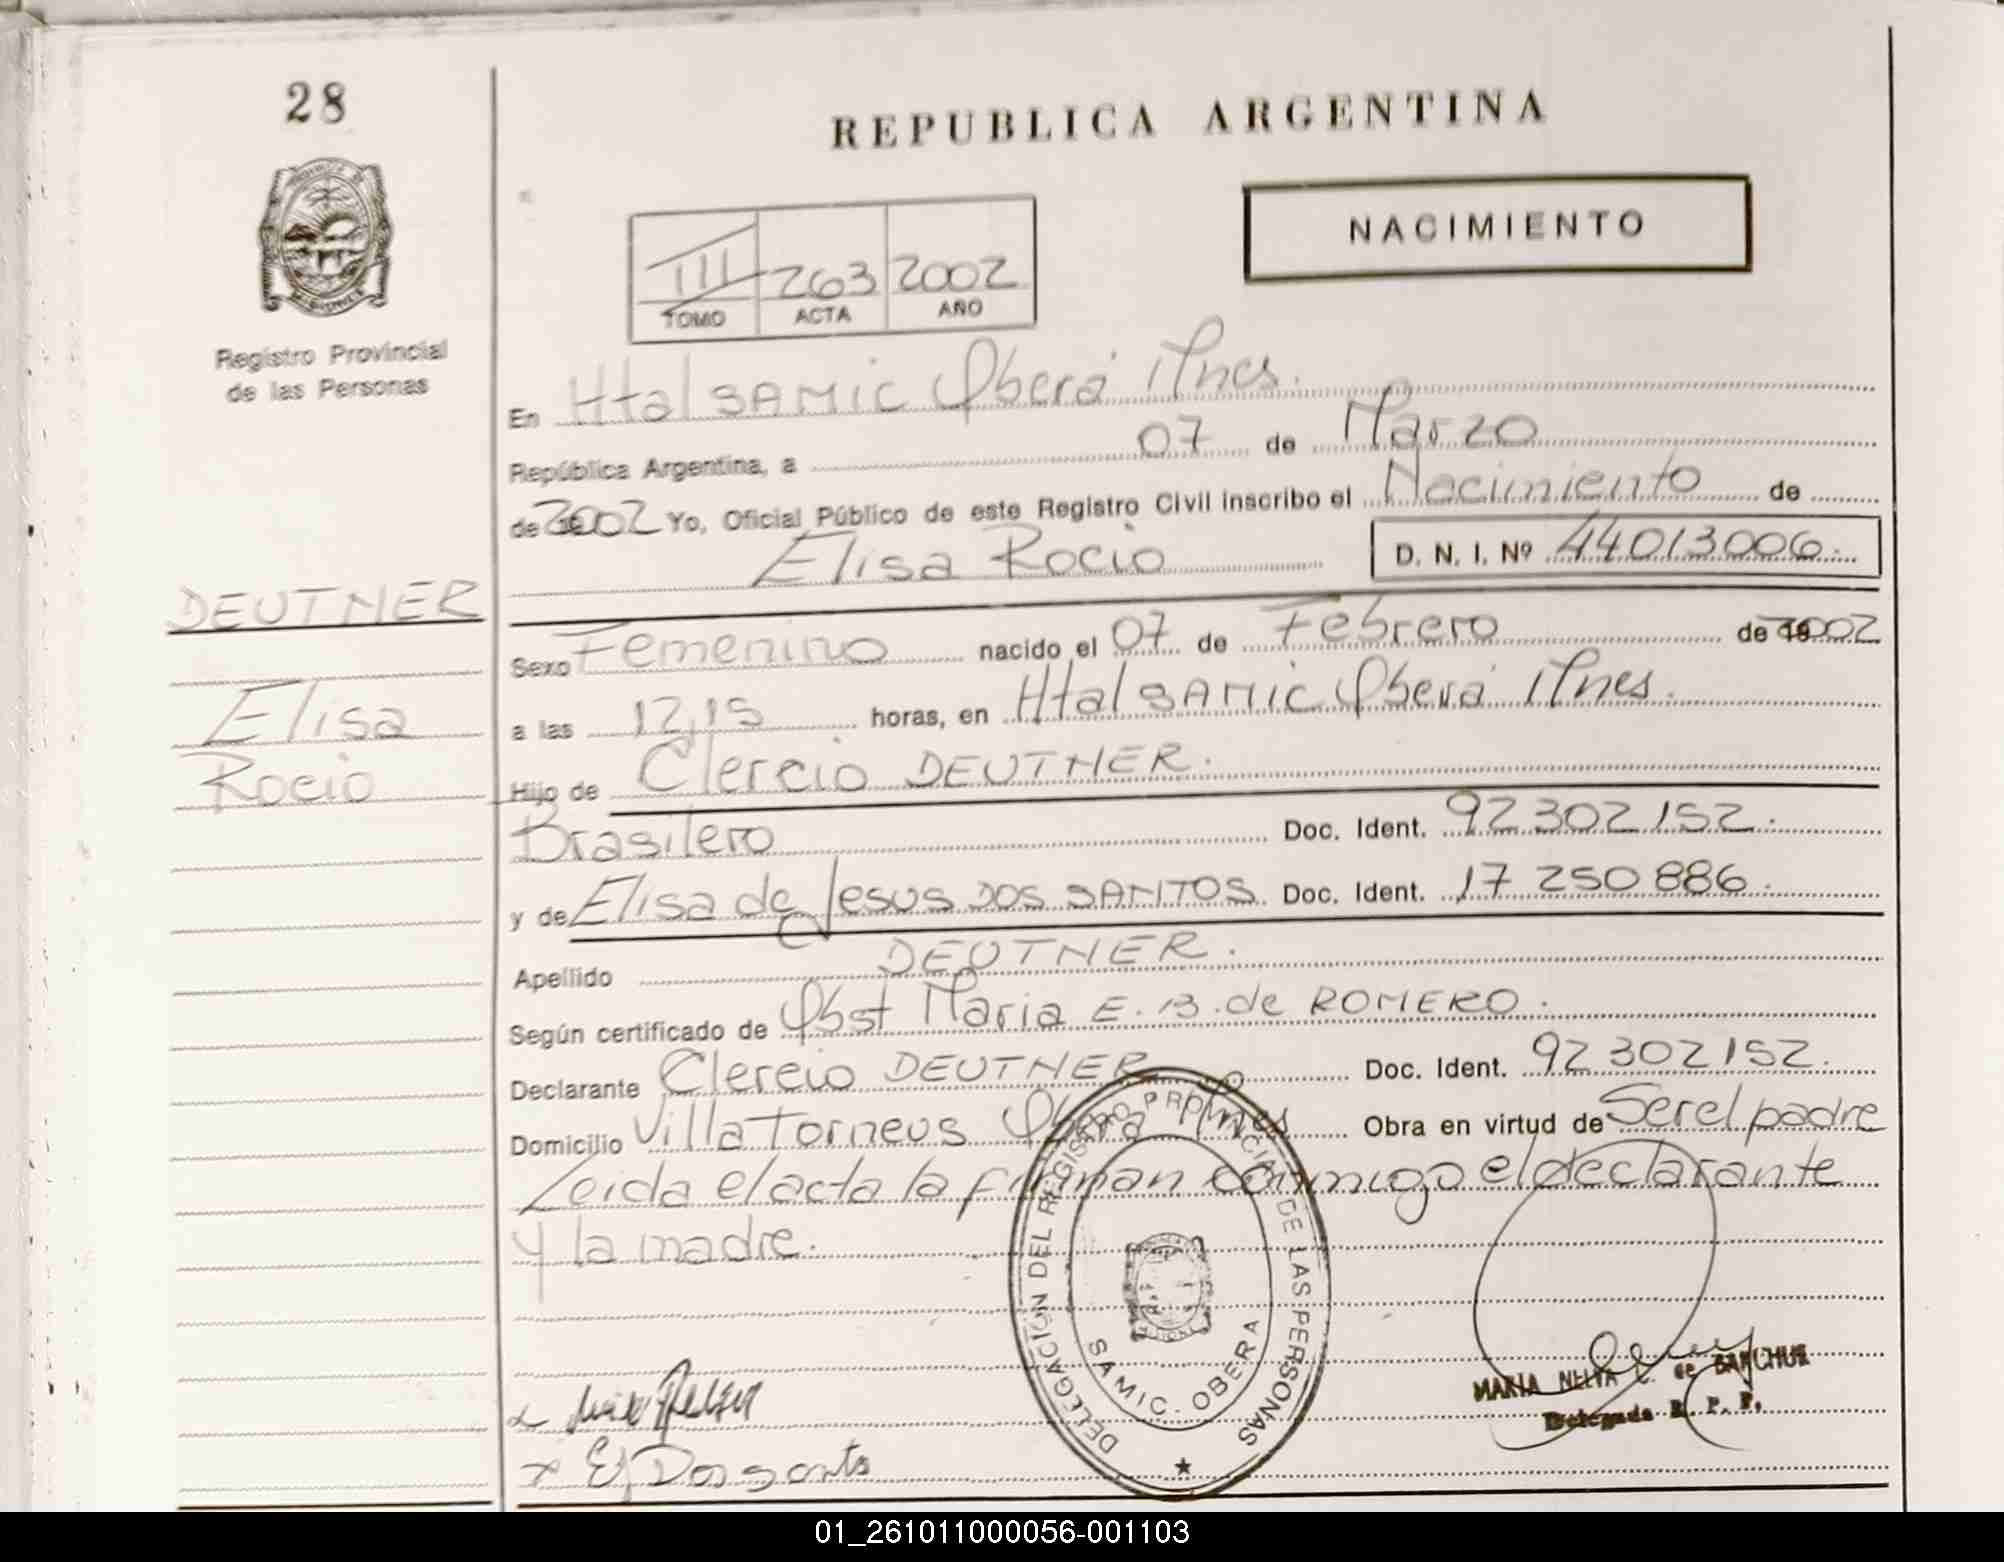 28
REPUBLICA ARGENTINA
NACIMIENTO
III 263 2002
TOMO ACTA AÑO
Registro Provincial
de las Personas
En Htal SAMIC Oberá Mnes.
República Argentina, a 07 de Marzo
de 2002 Yo, Oficial Público de este Registro Civil inscribo el Nacimiento de
Elisa Rocio D. N. I. Nº 44013006.
DEUTNER
Elisa
Rocio
Sexo Femenino nacido el 07 de Febrero de 2002
a las 12,15 horas, en Htal SAMIC Oberá Mnes.
Hijo de Clereio DEUTNER.
Brasilero Doc. Ident. 92 302 152.
y de Elisa de Jesus DOS SANTOS Doc. Ident. 17 250 886.
Apellido DEUTNER.
Según certificado de Obst Maria E. B. de ROMERO.
Declarante Clereio DEUTNER Doc. Ident. 92 302 152.
Domicilio Villa Torneus Oberá Mnes Obra en virtud de Ser el padre
Leida el acta la firman conmigo el declarante
y la madre.
DELEGACIÓN DEL REGISTRO PROVINCIAL DE LAS PERSONAS
SAMIC. OBERA
MARIA NELYA C. de
Delegada R. P. P.
x E J Dos santos
01_261011000056-001103